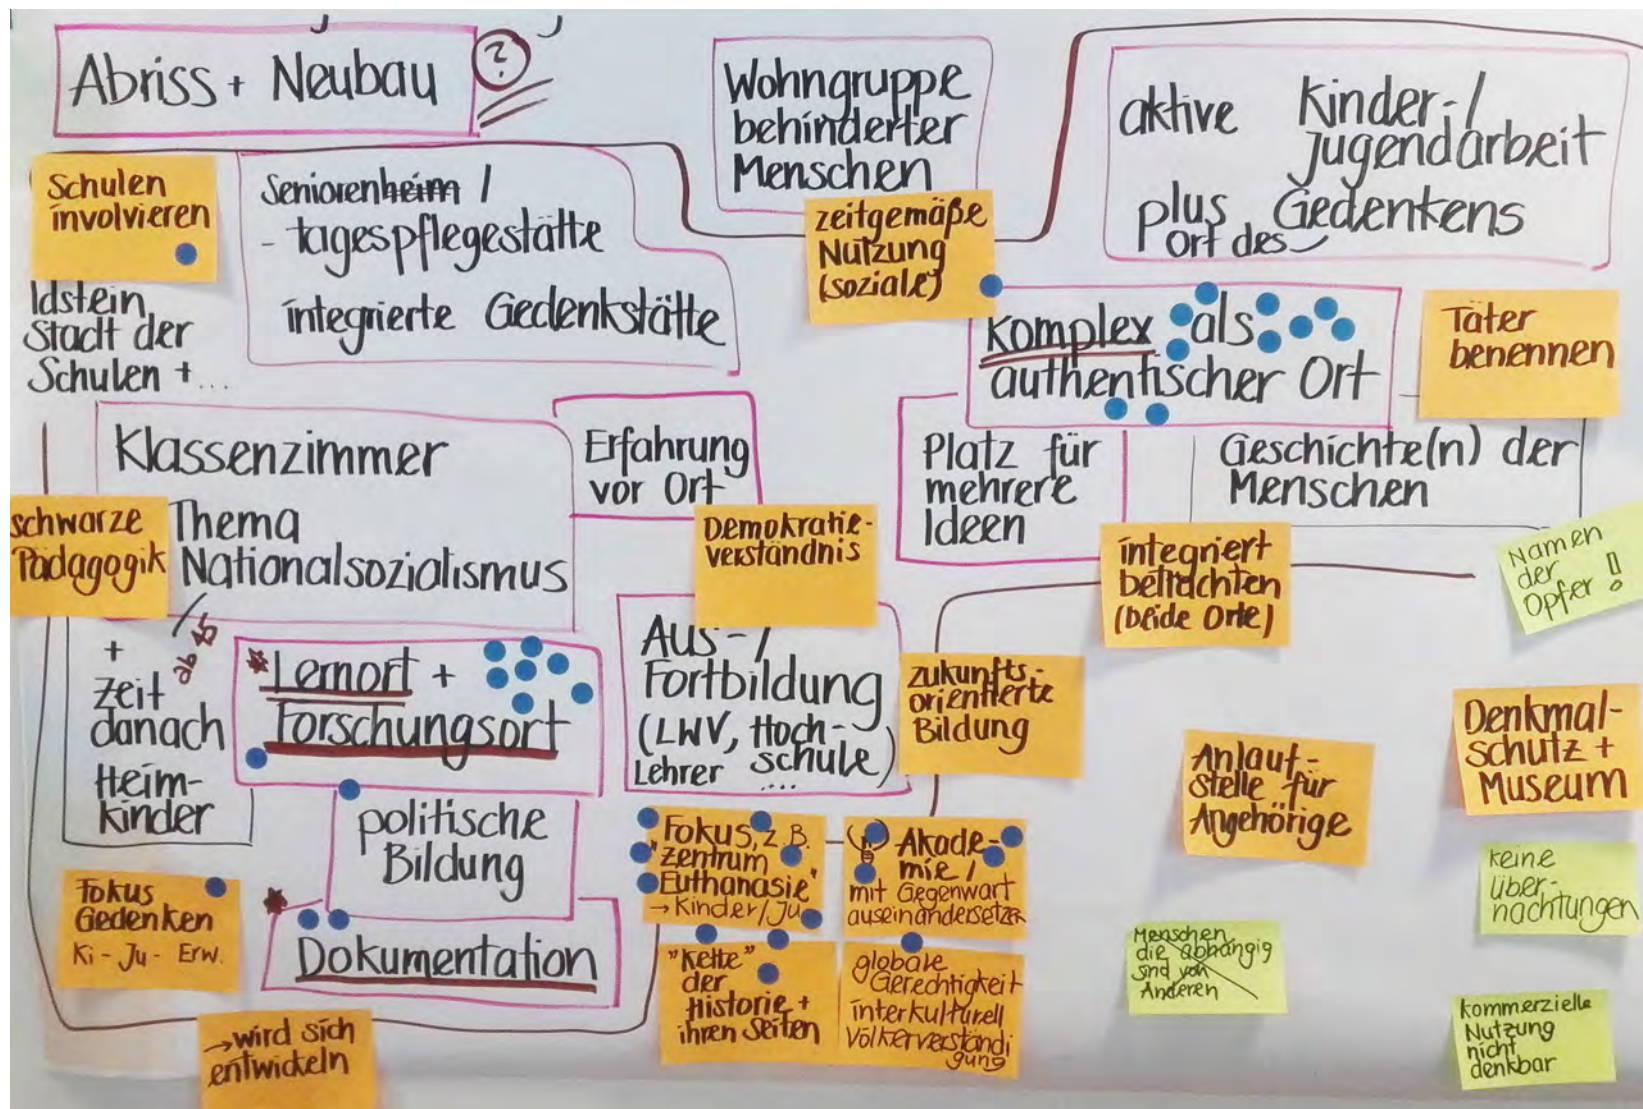 Abriss + Neubau
?
Wohngruppe
behinderter
Menschen
aktive Kinder-/
jugendarbeit
plus Gedenkens
Ort des
Schulen
involvieren
Seniorenheim /
- tagespflegestätte
integrierte Gedenkstätte
zeitgemäße
Nutzung
(soziale)
Idstein
Stadt der
Schulen + ...
Komplex als
authentischer Ort
Täter
benennen
Klassenzimmer
Thema
Nationalsozialismus
Erfahrung
vor Ort
Platz für
mehrere
Ideen
Geschichte(n) der
Menschen
schwarze
Pädagogik
Demokratie-
verständnis
integriert
betrachten
(beide Orte)
Namen
der
Opfer !
+
Zeit
danach
Heim-
kinder
ab 45
Lernort +
Forschungsort
Aus- /
Fortbildung
(LWV, Hoch-
schule)
Lehrer ....
zukunfts-
orientierte
Bildung
Anlauf-
stelle für
Angehörige
Denkmal-
schutz +
Museum
politische
Bildung
Fokus, z.B.
"Zentrum
Euthanasie"
→ Kinder/Ju
(!) Akade-
mie /
mit Gegenwart
auseinandersetzen
keine
über-
nachtungen
Fokus
Gedenken
Ki - Ju - Erw.
Dokumentation
"Kette"
der
Historie +
ihren Seiten
globale
Gerechtigkeit
interkulturell
Völkerverständi
gung
Menschen,
die abhängig
sind von
Anderen
kommerzielle
Nutzung
nicht
denkbar
→ wird sich
entwickeln